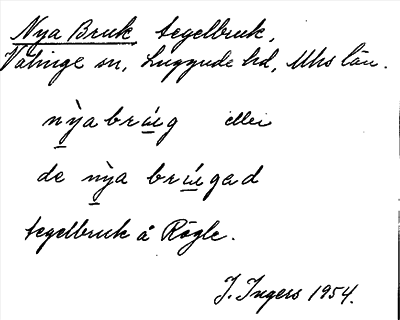 Nya Bruk, tegelbruk,
Välinge sn, Luggude hd, Mhs län.
nỳa brúg eller
de nỳa brúged
tegelbruk å Rögle.
J. Ingers 1954.